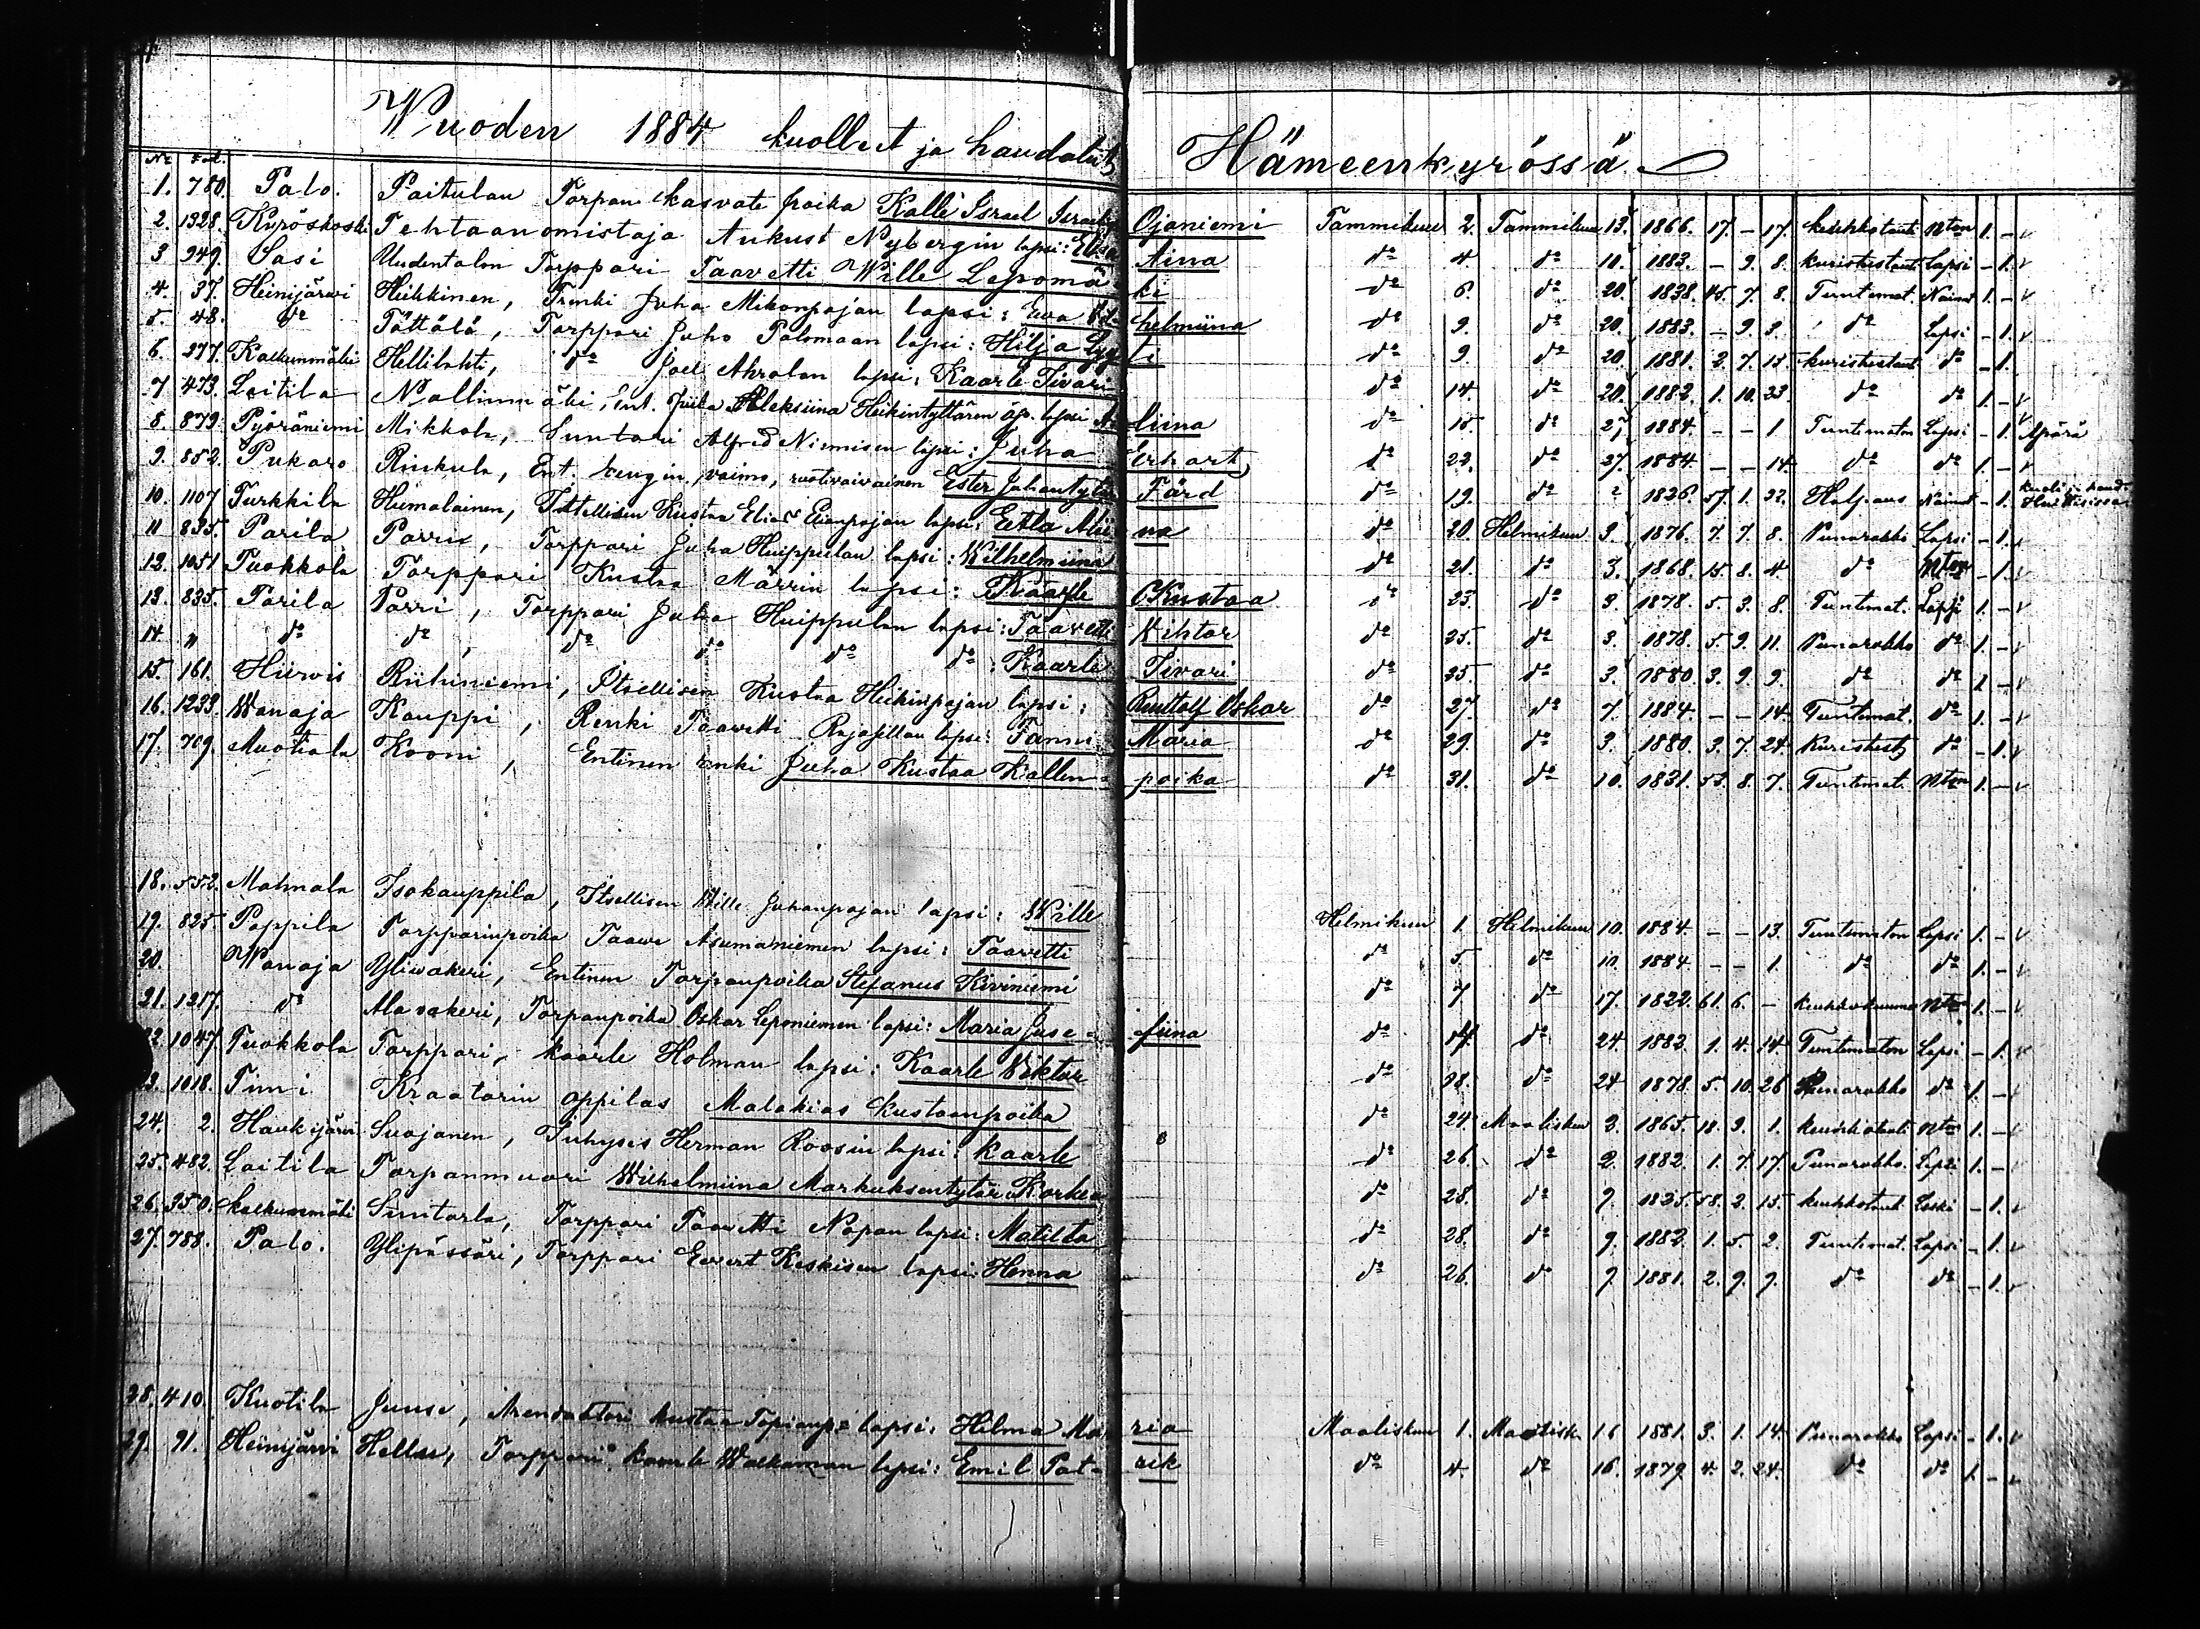 Wuoden 1884 kuolleet ja haudatut Hämeenkyrössä
No Fol.
1. 780. Palo. Paitulan Torpan kasvate poika Kalle Israel Ojaniemi Tammikuu 2. Tammikuu 13. 1866. 17. - 17. keuhkotauti Nton 1. -
2. 1328. Kyröskoski Tehtaanomistaja Aukust Nybergin lapsi: Elsa Aina do 4. do 10. 1883. - 9. 8. kuristustauti lapsi - 1.
3 949. Sasi Uudentalon Torppari Taavetti Wille Lepomäki do 6. do 20. 1838. 45. 7. 8. Tuntemat. Nainut 1. -
4. 37. Heinijärwi Heikkinen, Renki Juha Mikonpojan lapsi: Eva Wilhelmiina do 9. do 20. 1883. - 9. 9. do Lapsi - 1.
5. 48. do Töttölä, Torppari Juho Palomaan lapsi: Hilja Lyyti do 9. do 20. 1881. 2. 7. 13 kuristustaut do - 1.
6. 277. Kalkunmäki Hellilahti, do Joel Ahrolan lapsi: Kaarle Iivari do 14. do 20. 1882. 1. 10. 23. do do 1. -
7 473. Laitila Nallinmäki, Ent. Piika Aleksiina Heikintyttären äp. lapsi Aliina do 15. do 27. 1884. - - 1 Tuntematon Lapsi - 1. Äpärä
8. 879. Pyöräniemi Mikkola, Suutari Alfred Niemisen lapsi: Juha Erhart do 22. do 27. 1884. - - 14. do do 1. -
9. 852. Pukara Rinkula, Ent. rengin vaimo, ruotivaivainen Ester Juhantytär Färd do 19. do 2 1826. 57. 1. 22. Halpaus Nainut - 1.
10. 1107 Turkkila Humalainen, Itsellisen Kustaa Elias Eliaanpojan lapsi: Eetla Aliina do 20. Helmikuu 3. 1876. 7. 7. 8. Punarokko Lapsi - 1.
11 835. Parila Parri, Torppari Juha Huippulan lapsi: Wilhelmiina do 21. do 3. 1868. 15. 8. 4. do Nton - 1.
12. 1051 Tuokkola Torppari Kustaa Märrin lapsi: Kaarle Kustaa do 23. do 3. 1878. 5. 3. 8. Tuntemat. Lapsi 1. -
13. 835. Parila Parri, Torppari Juha Huippulan lapsi: Taavetti Wihtor do 25. do 3. 1878. 5. 9. 11. Punarokko do 1. -
14. " do do, do do do do: Kaarle Iivari do 25. do 3. 1880. 3. 9. 9. do do 1 -
15. 161. Hiirvis Riihiniemi, Itsellisen Kustaa Heikinpojan lapsi: Ruttolf Oskar do 27. do 7. 1884. - - 14. Tuntemat. do 1. -
16. 1233. Wanaja Kauppi, Renki Taawetti Rajasillan lapsi: Fanni Maria do 29. do 3. 1880. 3. 7. 24. Kuristust do - 1.
17. 709. Muotiala Kooni, Entinen renki Juha Kustaa Kallenpoika do 31. do 10. 1831. 53. 8. 7. Tuntemat. Nton 1. -
18. 552. Mahnala Isokauppila, Itsellisen Wille Juhanpojan lapsi: Wille Helmikuu 1. Helmikuu 10. 1884. - - 13. Tuntematon Lapsi 1. -
19. 825. Pappila Torpparinpoika Taawe Asumaniemen lapsi: Taavetti do 5. do 10. 1884. - - 1. do do 1. -
20. Wanaja Yliwakeri, Entinen Torpanpoika Stefanus Kiviniemi do 7 do 17. 1822. 61. 6. - Nton 1. -
21. 1217. do Alavakeri, Torpanpoika Oskar Leponiemen lapsi: Maria Josefiina do 14. do 24. 1882. 1. 4. 14. Tuntematon Lapsi - 1.
22 1047. Tuokkola Torppari, Kaarle Holman lapsi: Kaarle Wiktor do 18. do 24 1878. 5. 10. 26 Punarokko do 1. -
23. 1018. Tuni Kraatarin oppilas Malakias Kustaanpoika do 24. Maaliskuu 2. 1865. 18. 9. 1. keuhkotauti Nton 1. -
24. 2. Haukijärwi Suojanen, Herman Roosin lapsi: Kaarle do 26. do 2. 1882. 1. 7. 17. Punarokko. Lapsi 1. -
25. 482. Laitila Torpanmuori Wilhelmiina Markuksentytär Korkea do 28. do 9. 1825. 58. 2. 15. keuhkotaut Leski - 1.
26. 350. Kalkunmäki Simtarla, Torppari Taawetti Nopan lapsi: Matilta do 28. do 9. 1882. 1. 5. 2. Tuntemat. Lapsi - 1.
27. 788. Palo. Ylipässäri, Torppari Eevert Keskisen lapsi: Henna do 26. do 9. 1881. 2. 9. 7. do do - 1.
28. 410. Kuotila Juuse, Arendaattori Kustaa lapsi: Hilma Maria Maaliskuu 1. Maalisk. 16 1881. 3. 1. 14. Punarokko Lapsi - 1.
29. 91. Heinijärvi Hellas, Torppari Kaarle Walkaman lapsi: Emil Patrik do 4. do 16. 1879. 4. 2. 24. do do 1. -